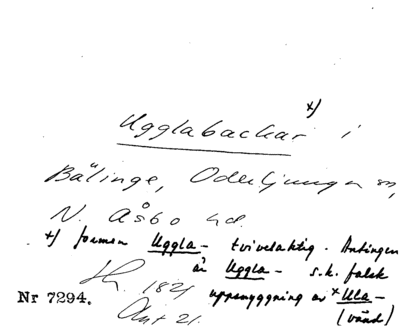 Ugglabackar x) i
Bälinge, Oderljunga sn,
N. Åsbo hd.
x) formen Uggla- tvivelaktig. Antingen
är Uggla- s.k. falsk
uppsnyggning av *Ula-
(vänd)
1821
Nr 7294.
21.